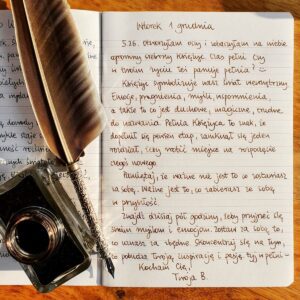 Wtorek 1 grudnia
5:26. Otworzyłam oczy i zobaczyłam na niebie
ogromny srebrny Księżyc. Czas pełni. Czy
w Twoim życiu też panuje pełnia?
Księżyc symbolizuje nasz świat wewnętrzny.
Emocje, pragnienia, myśli, wspomnienia,
a także to co jest duchowe, magiczne, trudne
do nazwania. Pełnia Księżyca to znak, że
dopełnił się pewien etap, zamknął się jeden
rozdział, żeby zrobić miejsce na rozpoczęcie
czegoś nowego.
Pamiętaj, że ważne nie jest to co zostawiasz
za sobą. Ważne jest to, co zabierasz ze sobą
w przyszłość.
Znajdź dzisiaj pół godziny, żeby przyjrzeć się
swoim myślom i emocjom. Zostaw za sobą to,
co uważasz za zbędne. Skoncentruj się na tym,
co pobudza Twoją inspirację i pasję, żyj w pełni
Kocham Cię,
Twoja B.